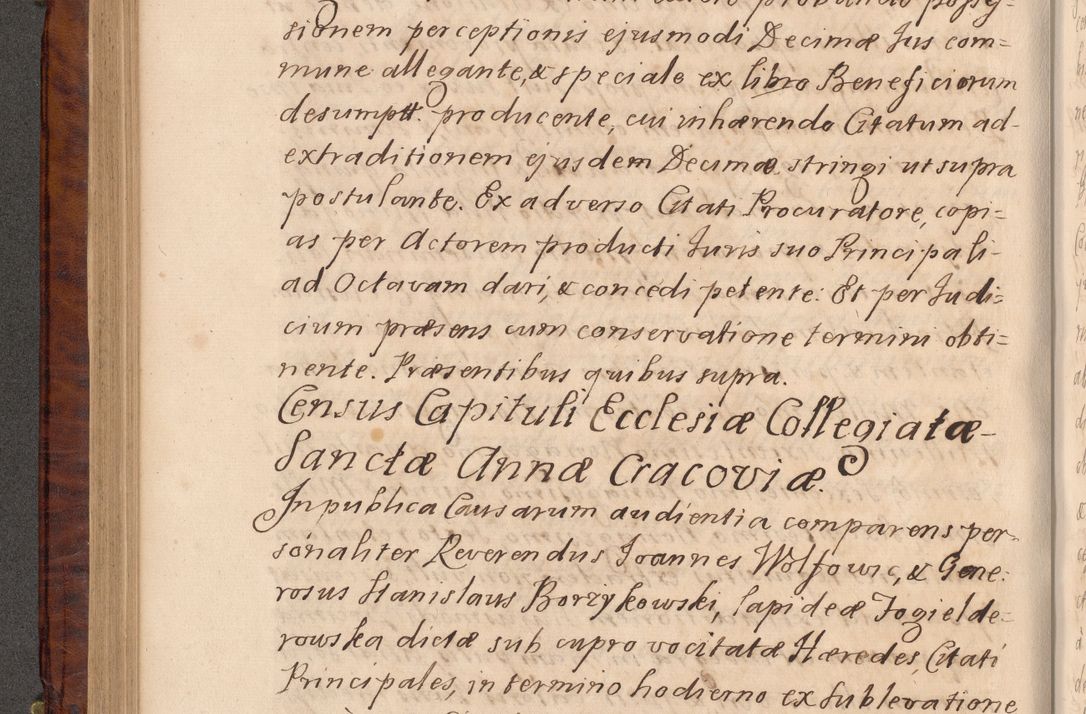 sionem perceptionis ejusmodi Decimæ Jus com=
mune allegante, & speciale ex libro Beneficiorum
desumptt. producente, cui inhærendo Citatum ad-
extraditionem ejusdem Decimæ stringi ut supra
postulante. Ex adverso Citati Procuratore, copi=
as per Actorem producti Juris suo Principali-
ad Octavam dari, & concedi petente: Et per Judi=
cium præsens cum conservatione termini obti=
nente. Præsentibus quibus supra.
Census Capituli Ecclesiæ Collegiatæ-
Sanctæ Annæ Cracoviæ.
In publica Causarum audientia comparens per=
sonaliter Reverendus Joannes Wolfowic, & Gene:
rosus Stanislaus Borzykowski, lapideæ Fogielde=
rowska dictæ sub cupro vocitatæ Hæredes, Citati
Principales, in termino hodierno ex sublevatione